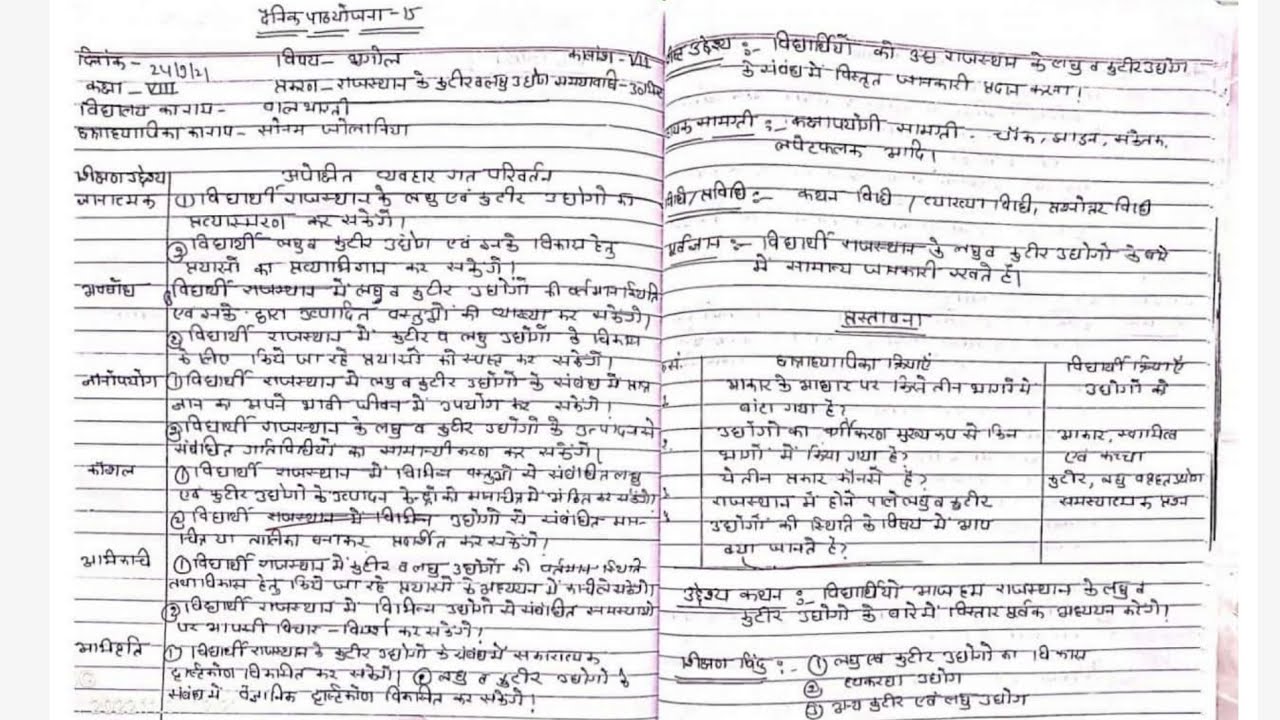 दैनिक पाठयोजना - 15
दिनांक - 24/9/21 विषय - भूगोल कालांश - VII
कक्षा - VIII प्रकरण - राजस्थान के कुटीर व लघु उद्योग समयावधि -
विद्यालय का नाम - बाल भारती
छात्राध्यापिका का नाम - सोनम
शिक्षण उद्देश्य अपेक्षित व्यवहार गत परिवर्तन
ज्ञानात्मक ① विद्यार्थी राजस्थान के लघु एवं कुटीर उद्योगों का
प्रत्यास्मरण कर सकेंगे।
② विद्यार्थी लघु व कुटीर उद्योग एवं उनके विकास हेतु
प्रयासों का प्रत्याभिज्ञान कर सकेंगे।
अवबोध ① विद्यार्थी राजस्थान में लघु व कुटीर उद्योगों की वर्तमान स्थिति
एवं उनके द्वारा उत्पादित वस्तुओं की व्याख्या कर सकेंगे।
② विद्यार्थी राजस्थान में कुटीर व लघु उद्योगों के विकास
के लिए किये जा रहे प्रयासों को स्पष्ट कर सकेंगे।
ज्ञानोपयोग ① विद्यार्थी राजस्थान में लघु व कुटीर उद्योगों के संबंध में प्राप्त
ज्ञान का अपने भावी जीवन में उपयोग कर सकेंगे।
② विद्यार्थी राजस्थान के लघु व कुटीर उद्योगों के उत्पादन से
संबंधित गतिविधियों का सामान्यीकरण कर सकेंगे।
कौशल ① विद्यार्थी राजस्थान में विभिन्न वस्तुओं से संबंधित लघु
एवं कुटीर उद्योगों के उत्पादन केन्द्रों को मानचित्र में अंकित कर सकेंगे।
② विद्यार्थी राजस्थान में विभिन्न उद्योगों से संबंधित मान-
चित्र या तालिका बनाकर प्रदर्शित कर सकेंगे।
अभिरूचि ① विद्यार्थी राजस्थान में कुटीर व लघु उद्योगों की वर्तमान स्थिति
तथा विकास हेतु किये जा रहे प्रयासों के अध्ययन में रूचि ले सकेंगे।
② विद्यार्थी राजस्थान में विभिन्न उद्योगों से संबंधित समस्याओं
पर आपसी विचार - विमर्श कर सकेंगे।
अभिवृत्ति ① विद्यार्थी राजस्थान के कुटीर उद्योगों के संबंध में सकारात्मक
दृष्टिकोण विकसित कर सकेंगे। ② लघु व कुटीर उद्योगों के
संबंध में वैज्ञानिक दृष्टिकोण विकसित कर सकेंगे।
उद्देश्य :- विद्यार्थियों को राजस्थान के लघु व कुटीर उद्योग
के संबंध में विस्तृत जानकारी प्रदान करना।
सामग्री :- कक्षोपयोगी सामग्री - चॉक, झाडन, संकेतक,
लपेटफलक आदि।
विधि/प्रविधि :- कथन विधि / व्याख्या विधि, प्रश्नोत्तर विधि
पूर्वज्ञान :- विद्यार्थी राजस्थान के लघु व कुटीर उद्योगों के बारे
में सामान्य जानकारी रखते हैं।
प्रस्तावना
सं. छात्राध्यापिका क्रियाएँ विद्यार्थी क्रियाएँ
आकार के आधार पर किसे तीन भागों में उद्योगों को
बांटा गया है?
उद्योगों का वर्गीकरण मुख्य रूप से किन आकार, स्वामित्व
भागों में किया गया है? एवं कच्चा
ये तीन प्रकार कौनसे है? कुटीर, लघु व वृहत उद्योग
राजस्थान में होने वाले लघु व कुटीर समस्यात्मक प्रश्न
उद्योगों की स्थिति के विषय में आप
क्या जानते है?
उद्देश्य कथन :- विद्यार्थियों आज हम राजस्थान के लघु व
कुटीर उद्योगों के बारे में विस्तार पूर्वक अध्ययन करेंगे।
शिक्षण बिंदु :- ① लघु एवं कुटीर उद्योगों का विकास
② हथकरघा उद्योग
③ अन्य कुटीर एवं लघु उद्योग